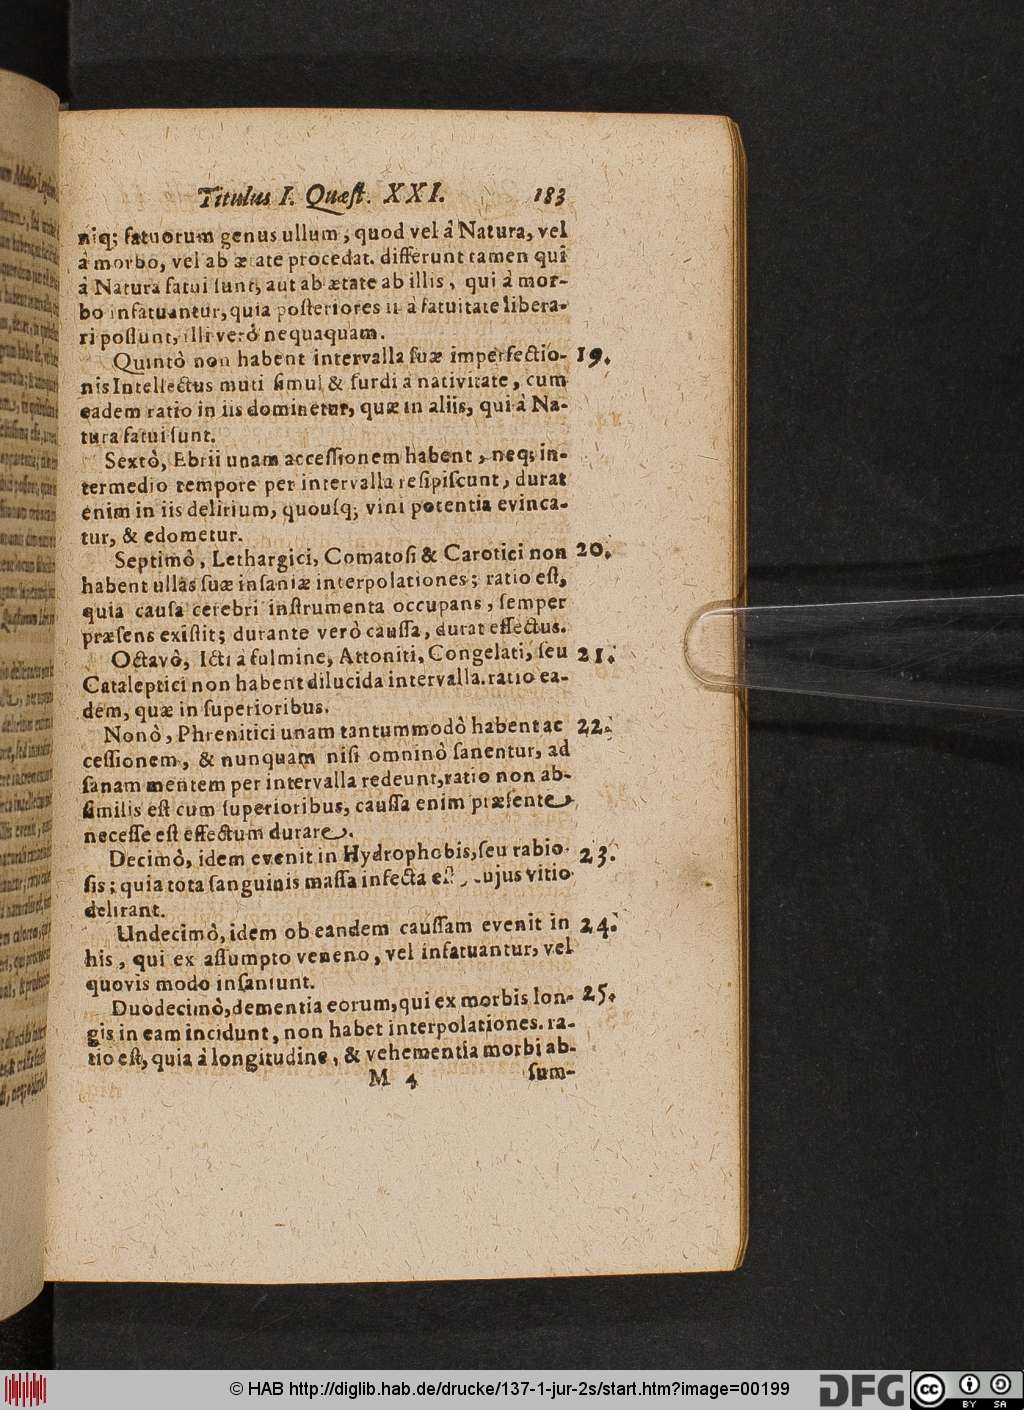 Titulus I. Quæst. XXI. 183
niq; fatuorum genus ullum, quod vel à Natura, vel
à morbo, vel ab ætate procedat. differunt tamen qui
à Natura fatui sunt, aut ab ætate ab illis, qui à mor-
bo infatuantur, quia posteriores à fatuitate libera-
ri possunt, illi verò nequaquam.
Quintò non habent intervalla suæ imperfectio- 19.
nis Intellectus muti simul & surdi a nativitate, cum
eadem ratio in iis dominetur, quæ in aliis, qui à Na-
tura fatui sunt.
Sextò, Ebrii unam accessionem habent, neq; in-
termedio tempore per intervalla resipiscunt, durat
enim in iis delirium, quousq; vini potentia evinca-
tur, & edometur.
Septimò, Lethargici, Comatosi & Carotici non 20.
habent ullas suæ insaniæ interpolationes; ratio est,
quia causa cerebri instrumenta occupans, semper
præsens existit; durante verò caussa, durat effectus.
Octavò, Icti a fulmine, Attoniti, Congelati, seu 21.
Cataleptici non habent dilucida intervalla. ratio ea-
dem, quæ in superioribus.
Nonò, Phrenitici unam tantummodò habent ac 22.
cessionem, & nunquam nisi omninò sanentur, ad
sanam mentem per intervalla redeunt, ratio non ab-
similis est cum superioribus, caussa enim præsente,
necesse est effectum durare.
Decimò, idem evenit in Hydrophobis, seu rabio- 23.
sis; quia tota sanguinis massa infecta est, cujus vitio
delirant.
Undecimò, idem ob eandem caussam evenit in 24.
his, qui ex assumpto veneno, vel infatuantur, vel
quovis modo insaniunt.
Duodecimò, dementia eorum, qui ex morbis lon- 25.
gis in eam incidunt, non habet interpolationes. ra-
tio est, quia à longitudine, & vehementia morbi ab-
M 4 sum-
© HAB http://diglib.hab.de/drucke/137-1-jur-2s/start.htm?image=00199
DFG
cc BY SA